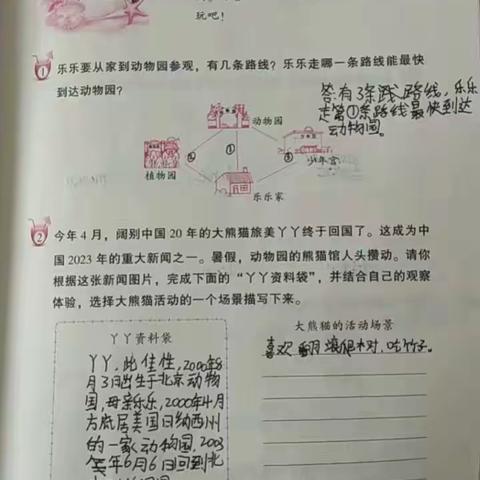 玩吧！
1 乐乐要从家到动物园参观，有几条路线？乐乐走哪一条路线能最快
到达动物园？
答有3条践路线，乐乐
走第①条路线最快到达
动物园。
动物园
植物园
②
①
③
少年宫
乐乐家
2 今年 4 月，阔别中国 20 年的大熊猫旅美丫丫终于回国了。这成为中
国 2023 年的重大新闻之一。暑假，动物园的熊猫馆人头攒动。请你
根据这张新闻图片，完成下面的“丫丫资料袋”，并结合自己的观察
体验，选择大熊猫活动的一个场景描写下来。
丫丫资料袋
丫丫，此佳性，2000年8
月3日出生于北京动物
园，母亲乐乐，2000年4月
方旅居美国田纳西州
的一家动物园，2003
年6月6日回到北
大熊猫的活动场景
喜欢翻爬树，吃竹子。